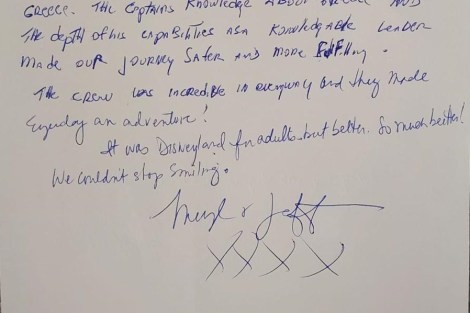 Greece. The Captains Knowledge About AND
The depth of his capabilities as a Knowledgeable Leader
Made our journey Safer and more
The Crew was incredible in every way and they Made
Everyday an adventure!
It was Disneyland for adults but better. So much better!
We couldn't stop smiling.
& Jeff
XXXX